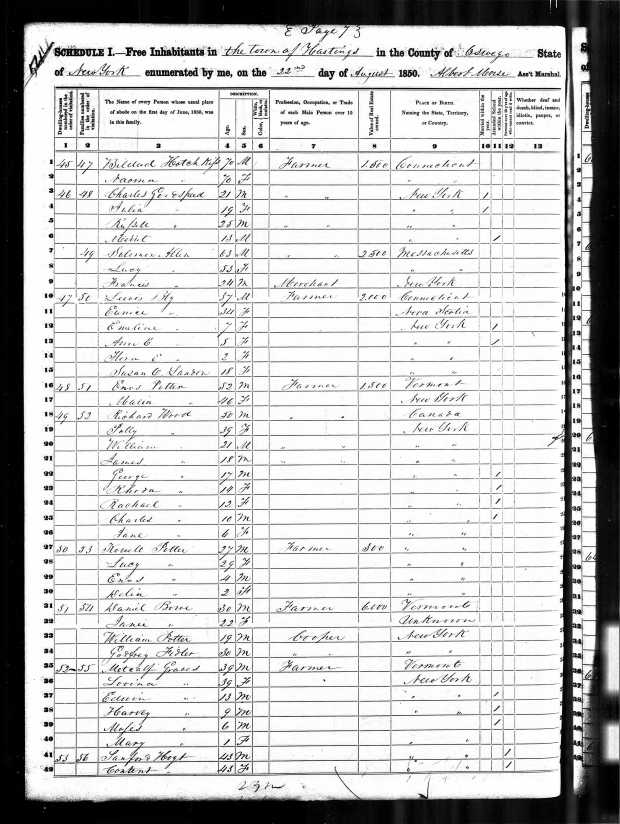 Page 73
SCHEDULE I.—Free Inhabitants in the town of Hastings in the County of Oswego State
of New York enumerated by me, on the 22nd day of August 1850. Albert Morse Ass't Marshal.
DESCRIPTION.
Dwelling-houses numbered in the order of visitation.
Families numbered in the order of visitation.
The Name of every Person whose usual place of abode on the first day of June, 1850, was in this family.
Age.
Sex.
Profession, Occupation, or Trade of each Male Person over 15 years of age.
Value of Real Estate owned.
PLACE OF BIRTH. Naming the State, Territory, or Country.
Married within the year.
Attended School within the year.
Whether deaf and dumb, blind, insane, idiotic, pauper, or convict.
1 2 3 4 5 6 7 8 9 10 11 12 13
1 45 47 Hotchkiss 70 M Farmer 1.500 Connecticut
2 Naoma " 70 F " "
3 46 48 Charles 21 M " " New York 1
4 " 19 F " " 1
5 " 25 M " "
6 " 13 M " " 1
7 49 Solomon Allen 63 M " " 2500 Massachusetts
8 Lucy " 53 F " "
9 Francis " 24 M Merchant New York
10 47 50 Lewis 37 M Farmer 2.000 Connecticut
11 Eunice " 34 F Nova Scotia
12 Emeline " 7 F New York 1
13 Ann E " 5 F " " 1
14 E " 2 F " "
15 Susan C 18 F " "
16 48 51 Enos Potter 52 M Farmer 1.500 Vermont
17 Maria " 46 F New York
18 49 52 Richard Wood 50 M " " Canada
19 Polly " 39 F New York
20 William " 21 M " " " "
21 James " 18 M " " " "
22 George " 17 M " " 1
23 Rhoda " 14 F " " 1
24 Rachael " 12 F " " 1
25 Charles " 10 M " " 1
26 Jane " 6 F " "
27 50 53 Potter 27 M Farmer 800 " "
28 Lucy " 29 F " "
29 Enos " 4 M " "
30 Helen " 2 F " "
31 51 54 Daniel Bowe 30 M Farmer 6000 Vermont
32 " 22 F Unknown
33 William Potter 19 M Cooper New York
34 Godfrey Fidler 30 M " " " "
35 52 55 Metcalf Graves 39 M Farmer Vermont
36 Lovina " 39 F New York
37 Edwin " 13 M " " 1
38 Harvey " 9 M " " 1
39 Moses " 6 M 1
40 Mary " 1 F " "
41 53 56 Sanford Hoyt 43 M " " 1
42 Content " 43 F " " 1